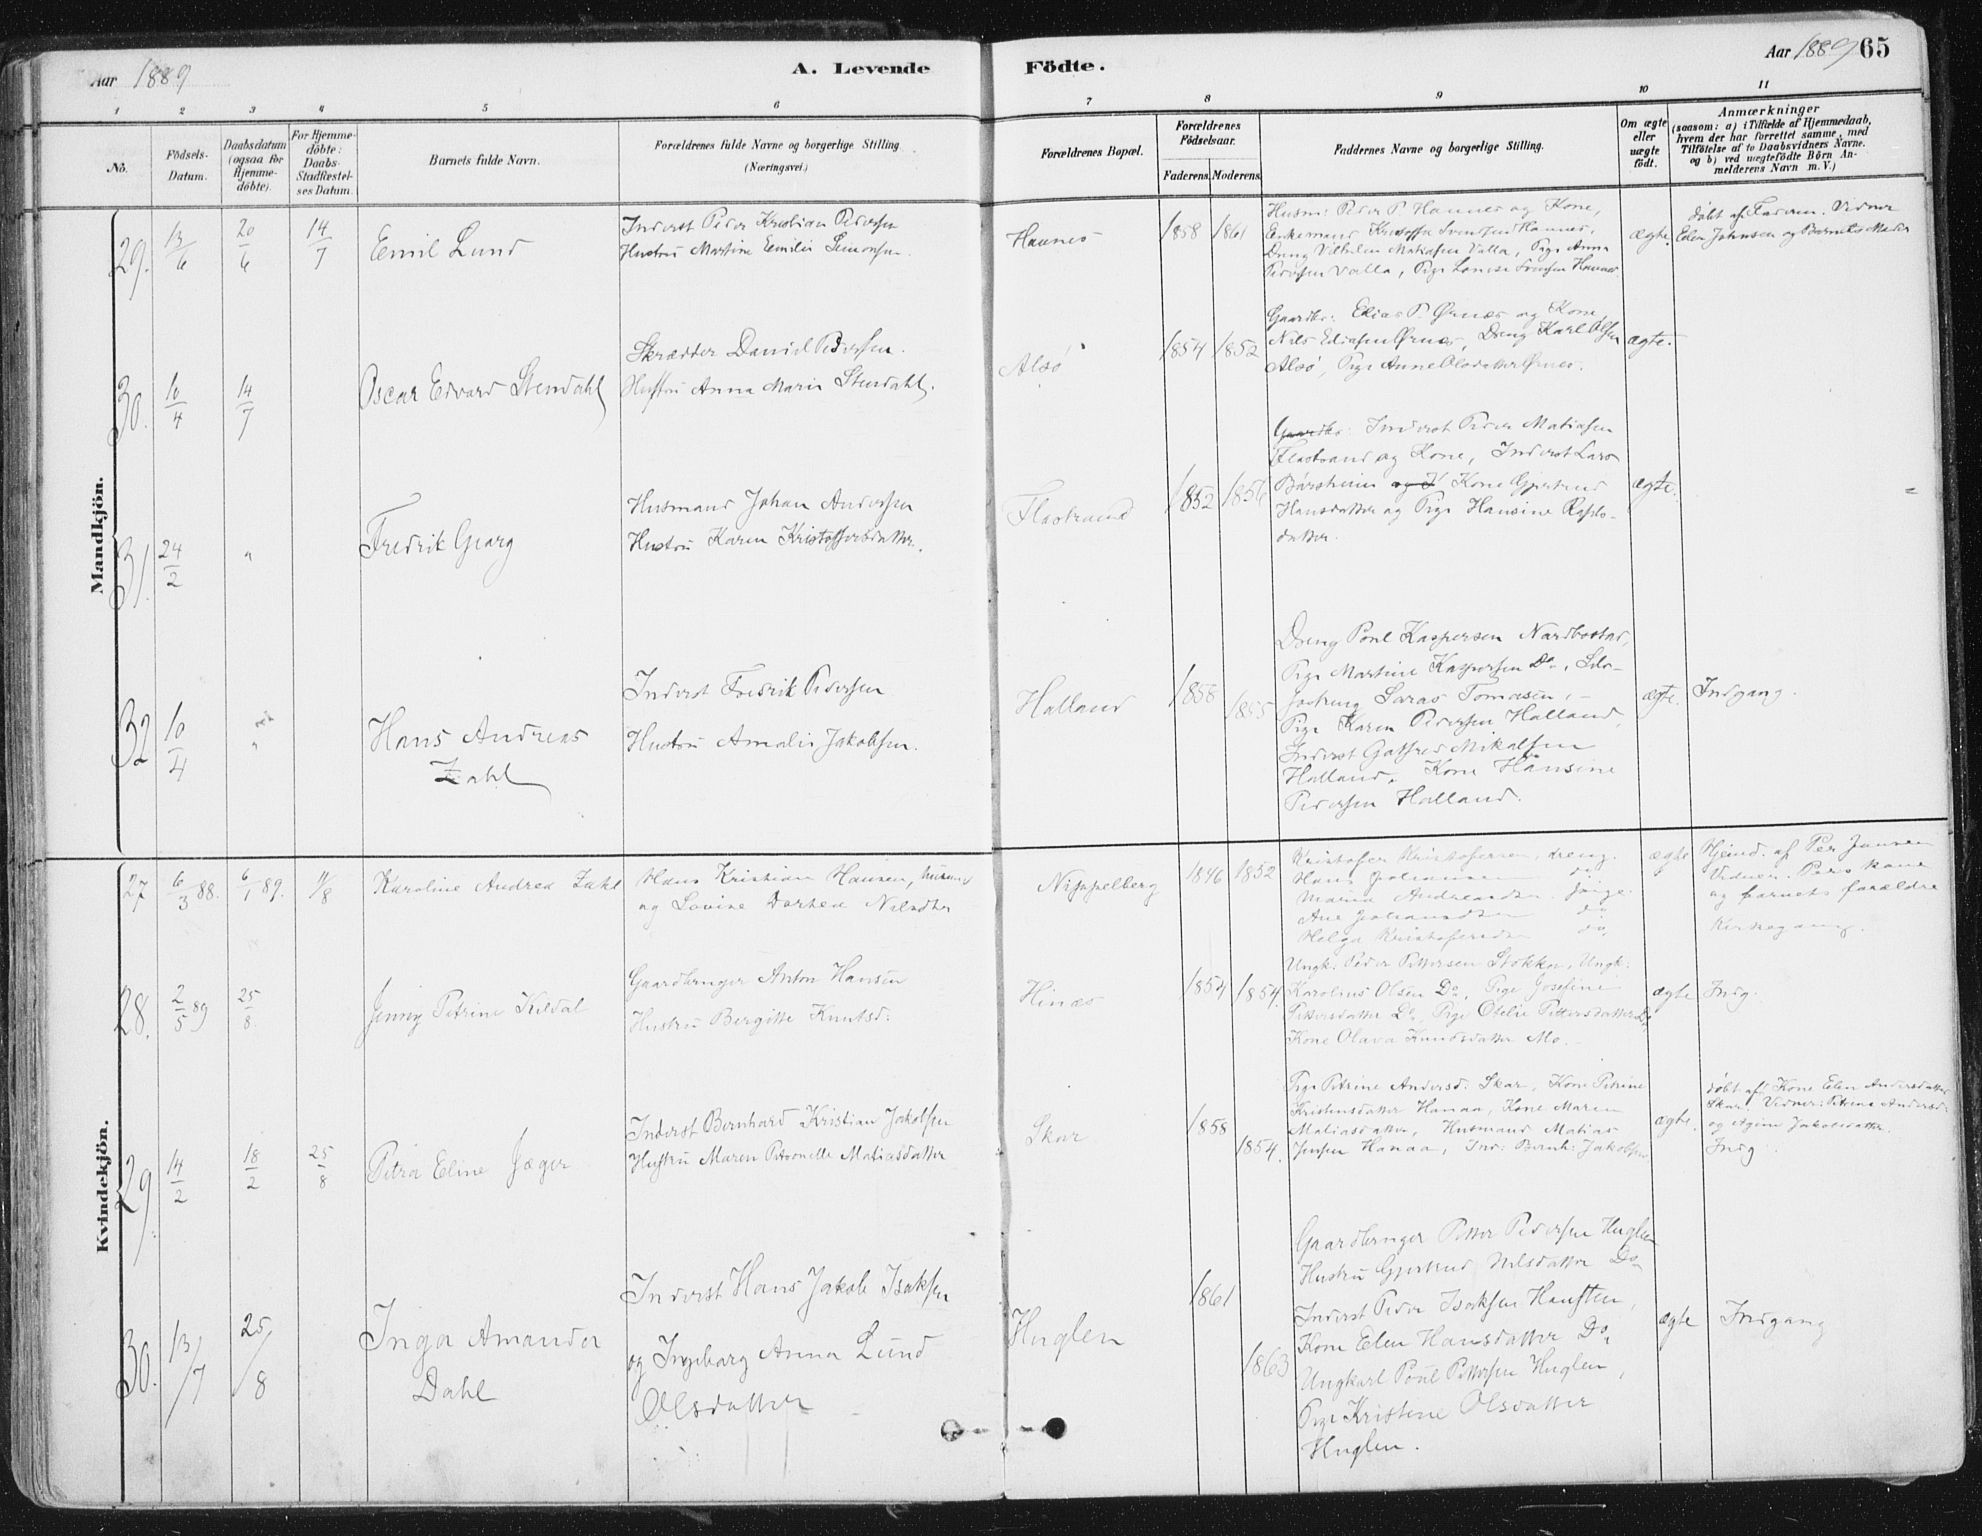 Aar 1889
A. Levende
Födte.
Aar 1889 65
1 2 3 4 5 6 7 8 9 10 11
No.
Födsels-
Datum.
Daabsdatum
(ogsaa for
Hjemme-
döbte).
For Hjemme-
döbte:
Daabs-
Stadfæstel-
ses Datum.
Barnets fulde Navn.
Forældrenes fulde Navne og borgerlige Stilling
(Næringsvei.)
Forældrenes Bopæl.
Forældrenes
Födselsaar.
Faderens. Moderens.
Faddernes Navne og borgerlige Stilling.
Om ægte
eller
uægte
födt.
Anmærkninger
(saasom: a) i Tilfælde af Hjemmedaab,
hvem der har forrettet samme, med
Tilföielse af to Daabsvidners Navne.
og b) ved uægtefödte Börn An-
melderens Navn m. V.)
Mandkjön.
29. 13/6 20/6 14/7 Emil Lund
Inderst Peder Kristian Pedersen
Hustru Martine Emilie Simonsen.
Hannes
1858 1861
Husm: Peder P. Hannes og Kone,
Enkemand Kristoffer Svensen Hannes,
Dreng Vilhelm Matiasen Valla, Pige Anna
Pedersen Valla, Pige Lovise Svensen Hannes.
ægte.
døbt af Faderen. Vidner
Elen Johnsen og Barnets Moder
30. 10/4 14/7 Oscar Edvard Stendahl
Skrædder Daniel Pedersen.
Hustru Anna Maria Stendahl.
Alsø
1854 1852
Gaardbr: Elias P. Ørnes og Kone,
Nils Eliasen Ørnes, Dreng Karl Olsen
Alsø, Pige Anne Olsdatter Ørnes.
ægte.
31. 24/2 " Fredrik Georg
Husmand Johan Andersen
Hustru Karen Kristoffersdatter.
Flostrand
1852 1856
Gaardbr: Inderst Peder Matiasen
Flostrand og Kone, Inderst Lars
og Kone Gjertrud
Hansdatter og Pige Hansine
datter.
ægte.
32 10/4 " Hans Andreas
Zahl
Inderst Fredrik Pedersen
Hustru Amalie Jakobsen.
Halland
1858 1855
Dreng Poul Kaspersen Nordbostad,
Pige Martine Kaspersen Do,
Tomasen,
Pige Karen Pedersen Halland,
Inderst Mikalsen
Halland, Kone Hansine
Pedersen Halland.
ægte. Indgang.
Kvindekjön.
27 6/3 88. 6/1 89. 11/8 Karoline Andrea Zahl
Hans Kristian Hansen, husmd
og Lovise Dorthea Nilsdtr
Nippelberg
1846 1852
Kristoffer Kristofersen, dreng.
Hans Johansen do
Maria Andreasdtr. pige.
Ane Johansdtr do
Helga Kristofersdtr do.
ægte
Hjemd. af Per Jansen
Vidner. Pers kone
og barnets forældre
Kirkegang.
28. 2/5 89 25/8. Jenny Petrine Kildal
Gaardbruger Anton Hansen
Hustru Bergitte Knutsd.
Hinæs
1854 1854.
Ungk: Peder Pettersen Stokka, Ungk:
Karolius Olsen Do, Pige Josefine
Pettersdatter Do, Pige Otelie Pettersdatter Do,
Kone Olava Knudsdatter Mo.
ægte Indg.
29. 14/2 18/2 25/8 Petra Eline Jæger
Inderst Bernhard Kristian Jakobsen
Hustru Maren Petronelle Matiasdatter
Skar
1858 1854.
Pige Petrine Andersd: Skar, Kone Petrine
Kristensdatter Hanaa, Kone Maren
Matiasdatter, Husmand Matias
Jensen Hanaa, Ind: Bernh: Jakobsen
ægte.
døbt af Kone Elen Andersdatter
Skar Vidner: Petrine Andersd:
og Jakobsdatter.
Indg.
30. 13/7 25/8 Inga Amanda
Dahl
Inderst Hans Jakob Isaksen
og Ingeborg Anna Lund
Olsdatter
Huglen
1861 1863
Gaardbruger Petter Pedersen Huglen
Hustru Gjertrud Nilsdatter Do
Inderst Peder Isaksen
Kone Elen Hansdatter Do,
Ungkarl Poul Pettersen Huglen,
Pige Kristine Olsdatter
Huglen.
ægte Indgang